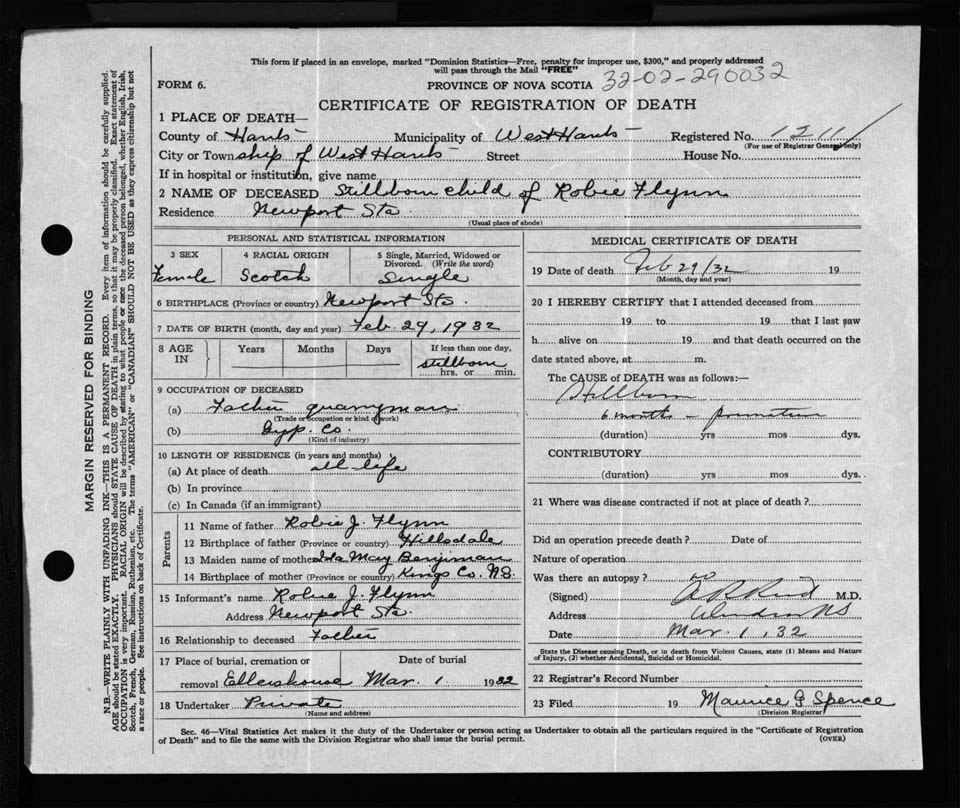 This form if placed in an envelope, marked "Dominion Statistics—Free, penalty for improper use, $300," and properly addressed
will pass through the Mail "FREE"
32-02-290032
FORM 6.
PROVINCE OF NOVA SCOTIA
CERTIFICATE OF REGISTRATION OF DEATH
1 PLACE OF DEATH—
County of Hants Municipality of West Hants Registered No. 1211
(For use of Registrar General only)
City or Township of West Hants Street House No.
If in hospital or institution, give name
2 NAME OF DECEASED Stillborn child of Robie Flynn
Residence Newport Sta.
(Usual place of abode)
PERSONAL AND STATISTICAL INFORMATION
3 SEX 4 RACIAL ORIGIN 5 Single, Married, Widowed or
Divorced. (Write the word)
Female Scotch Single
6 BIRTHPLACE (Province or country) Newport Sta.
7 DATE OF BIRTH (month, day and year) Feb. 29, 1932
8 AGE IN Years Months Days If less than one day,
stillborn
hrs. or min.
9 OCCUPATION OF DECEASED
(a) Father quarryman
(Trade or occupation or kind of work)
(b) Gyp. Co.
(Kind of industry)
10 LENGTH OF RESIDENCE (in years and months)
(a) At place of death all life
(b) In province
(c) In Canada (if an immigrant)
Parents
11 Name of father Robie J. Flynn
12 Birthplace of father (Province or country) Hillsdale
13 Maiden name of mother Ida May Benjiman
14 Birthplace of mother (Province or country) Kings Co. N.S.
15 Informant's name Robie J. Flynn
Address Newport Sta.
16 Relationship to deceased Father
17 Place of burial, cremation or Date of burial
removal Ellershouse Mar. 1 1932
18 Undertaker Private
(Name and address)
MEDICAL CERTIFICATE OF DEATH
19 Date of death Feb 29/32 19
(Month, day and year)
20 I HEREBY CERTIFY that I attended deceased from
19 to 19 that I last saw
h alive on 19 and that death occurred on the
date stated above, at m.
The CAUSE of DEATH was as follows:—
Stillborn
6 months - premature
(duration) yrs mos dys.
CONTRIBUTORY
(duration) yrs mos dys.
21 Where was disease contracted if not at place of death?
Did an operation precede death? Date of
Nature of operation
Was there an autopsy? no
(Signed) M.D.
Address Windsor NS
Date Mar. 1, 32
State the Disease causing Death, or in death from Violent Causes, state (1) Means and Nature
of Injury, (2) whether Accidental, Suicidal or Homicidal.
22 Registrar's Record Number
23 Filed 19 Maurice G Spence
(Division Registrar)
Sec. 46—Vital Statistics Act makes it the duty of the Undertaker or person acting as Undertaker to obtain all the particulars required in the "Certificate of Registration
of Death" and to file the same with the Division Registrar who shall issue the burial permit.
(OVER)
MARGIN RESERVED FOR BINDING
N.B.—WRITE PLAINLY WITH UNFADING INK—THIS IS A PERMANENT RECORD. Every item of information should be carefully supplied.
AGE should be stated EXACTLY. PHYSICIANS should STATE CAUSE OF DEATH in plain terms, so that it may be properly classified. Exact statement of
OCCUPATION is very important. RACIAL ORIGIN will be described by stating to what people or race the deceased person belonged, whether English, Irish,
Scotch, French, German, Russian, Ruthenian, etc. The terms "AMERICAN" or "CANADIAN" SHOULD NOT BE USED as they express citizenship but not
a race or people. See instructions on back of Certificate.